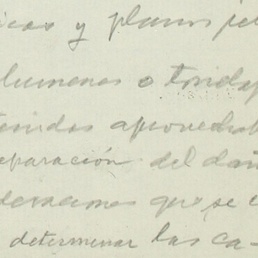 icas y planos
lumenes o
tenidos aprovechab
eparación del dañ
deraciones que se
determinar las ca-